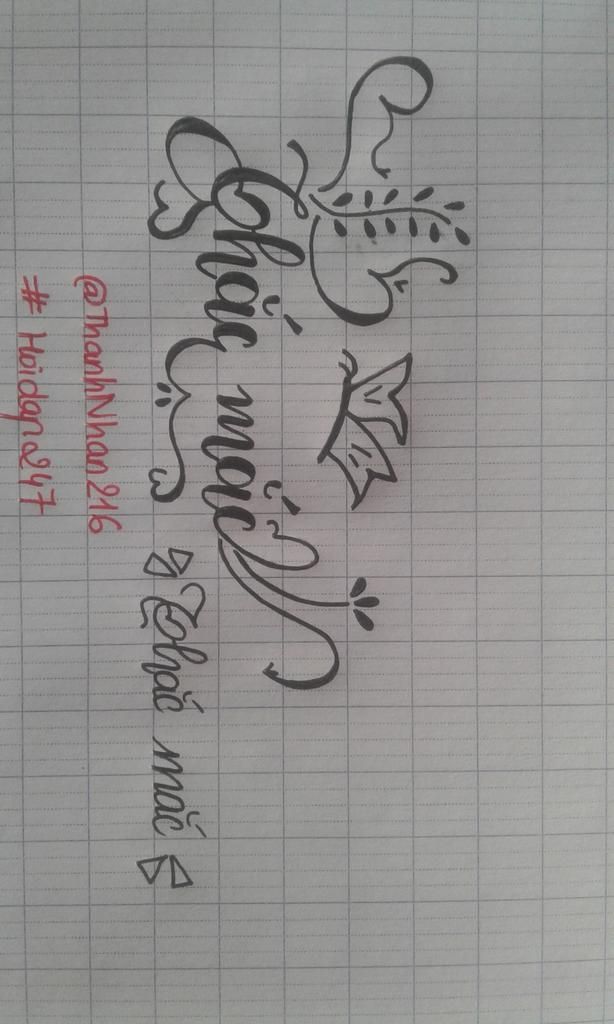 Thắc mắc
Thắc mắc
@ThanhNhan216
# Hoidap247